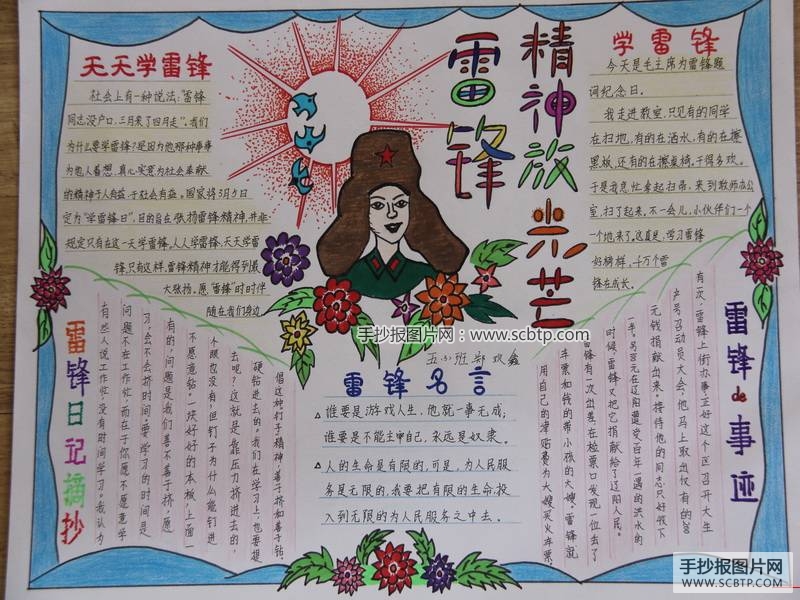 雷锋
精神放光芒
天天学雷锋
社会上有一种说法:“雷锋
同志没户口,三月来了四月走”。我们
为什么要学雷锋?是因为他那种事事
为他人着想,真心实意为社会奉献
的精神于人有益,于社会有益。国家将3月5日
定为“学雷锋日”,目的旨在张扬雷锋精神,并非
规定只有在这一天学雷锋,人人学雷锋,天天学雷
锋,只有这样,雷锋精神才能得到最
大张扬。愿“雷锋”时时伴
随在我们身边
学雷锋
今天是毛主席为雷锋题
词纪念日。
我走进教室,只见有的同学
在扫地,有的在洒水,有的在擦
黑板,还有的在擦桌椅,干得多欢。
于是我急忙拿起扫帚,来到教师办公
室,扫了起来。不一会儿,小伙伴们一个
一个地来了。这真是:学习雷锋
好榜样,千万个雷
锋在成长。
雷锋日记摘抄
有些人说工作忙,没有时间学习。我认为
问题不在工作忙,而在于你愿不愿意学
习,会不会挤时间。要学习的时间是
有的,问题是我们善不善于挤,愿
不愿意钻。一块好好的木板,上面一
个眼也没有,但钉子为什么能钉进
去呢?这就是靠压力挤进去的,
硬钻进去的。我们在学习上也要提
倡这种钉子精神,善于挤和善于钻。
雷锋de事迹
有一次,雷锋上街办事,正好这个区召开大生
产号召动员大会,他马上取出仅有的200
元钱捐献出来。接待他的同志只好收下
一半。另100元在辽阳遭受百年一遇的洪水的
时候,雷锋又把它捐献给了辽阳人民。
雷锋有一次出差,在检票口发现一位丢了
车票和钱的带小孩的大嫂,雷锋就
用自己的津贴费为大嫂买火车票,
五(2)班 郑欢鑫
雷锋名言
△ 谁要是游戏人生,他就一事无成;
谁要是不能主宰自己,永远是奴隶。
△ 人的生命是有限的,可是,为人民服
务是无限的,我要把有限的生命投
入到无限的为人民服务之中去。
手抄报图片网:www.scbtp.com
手抄报图片网
WWW.SCBTP.COM